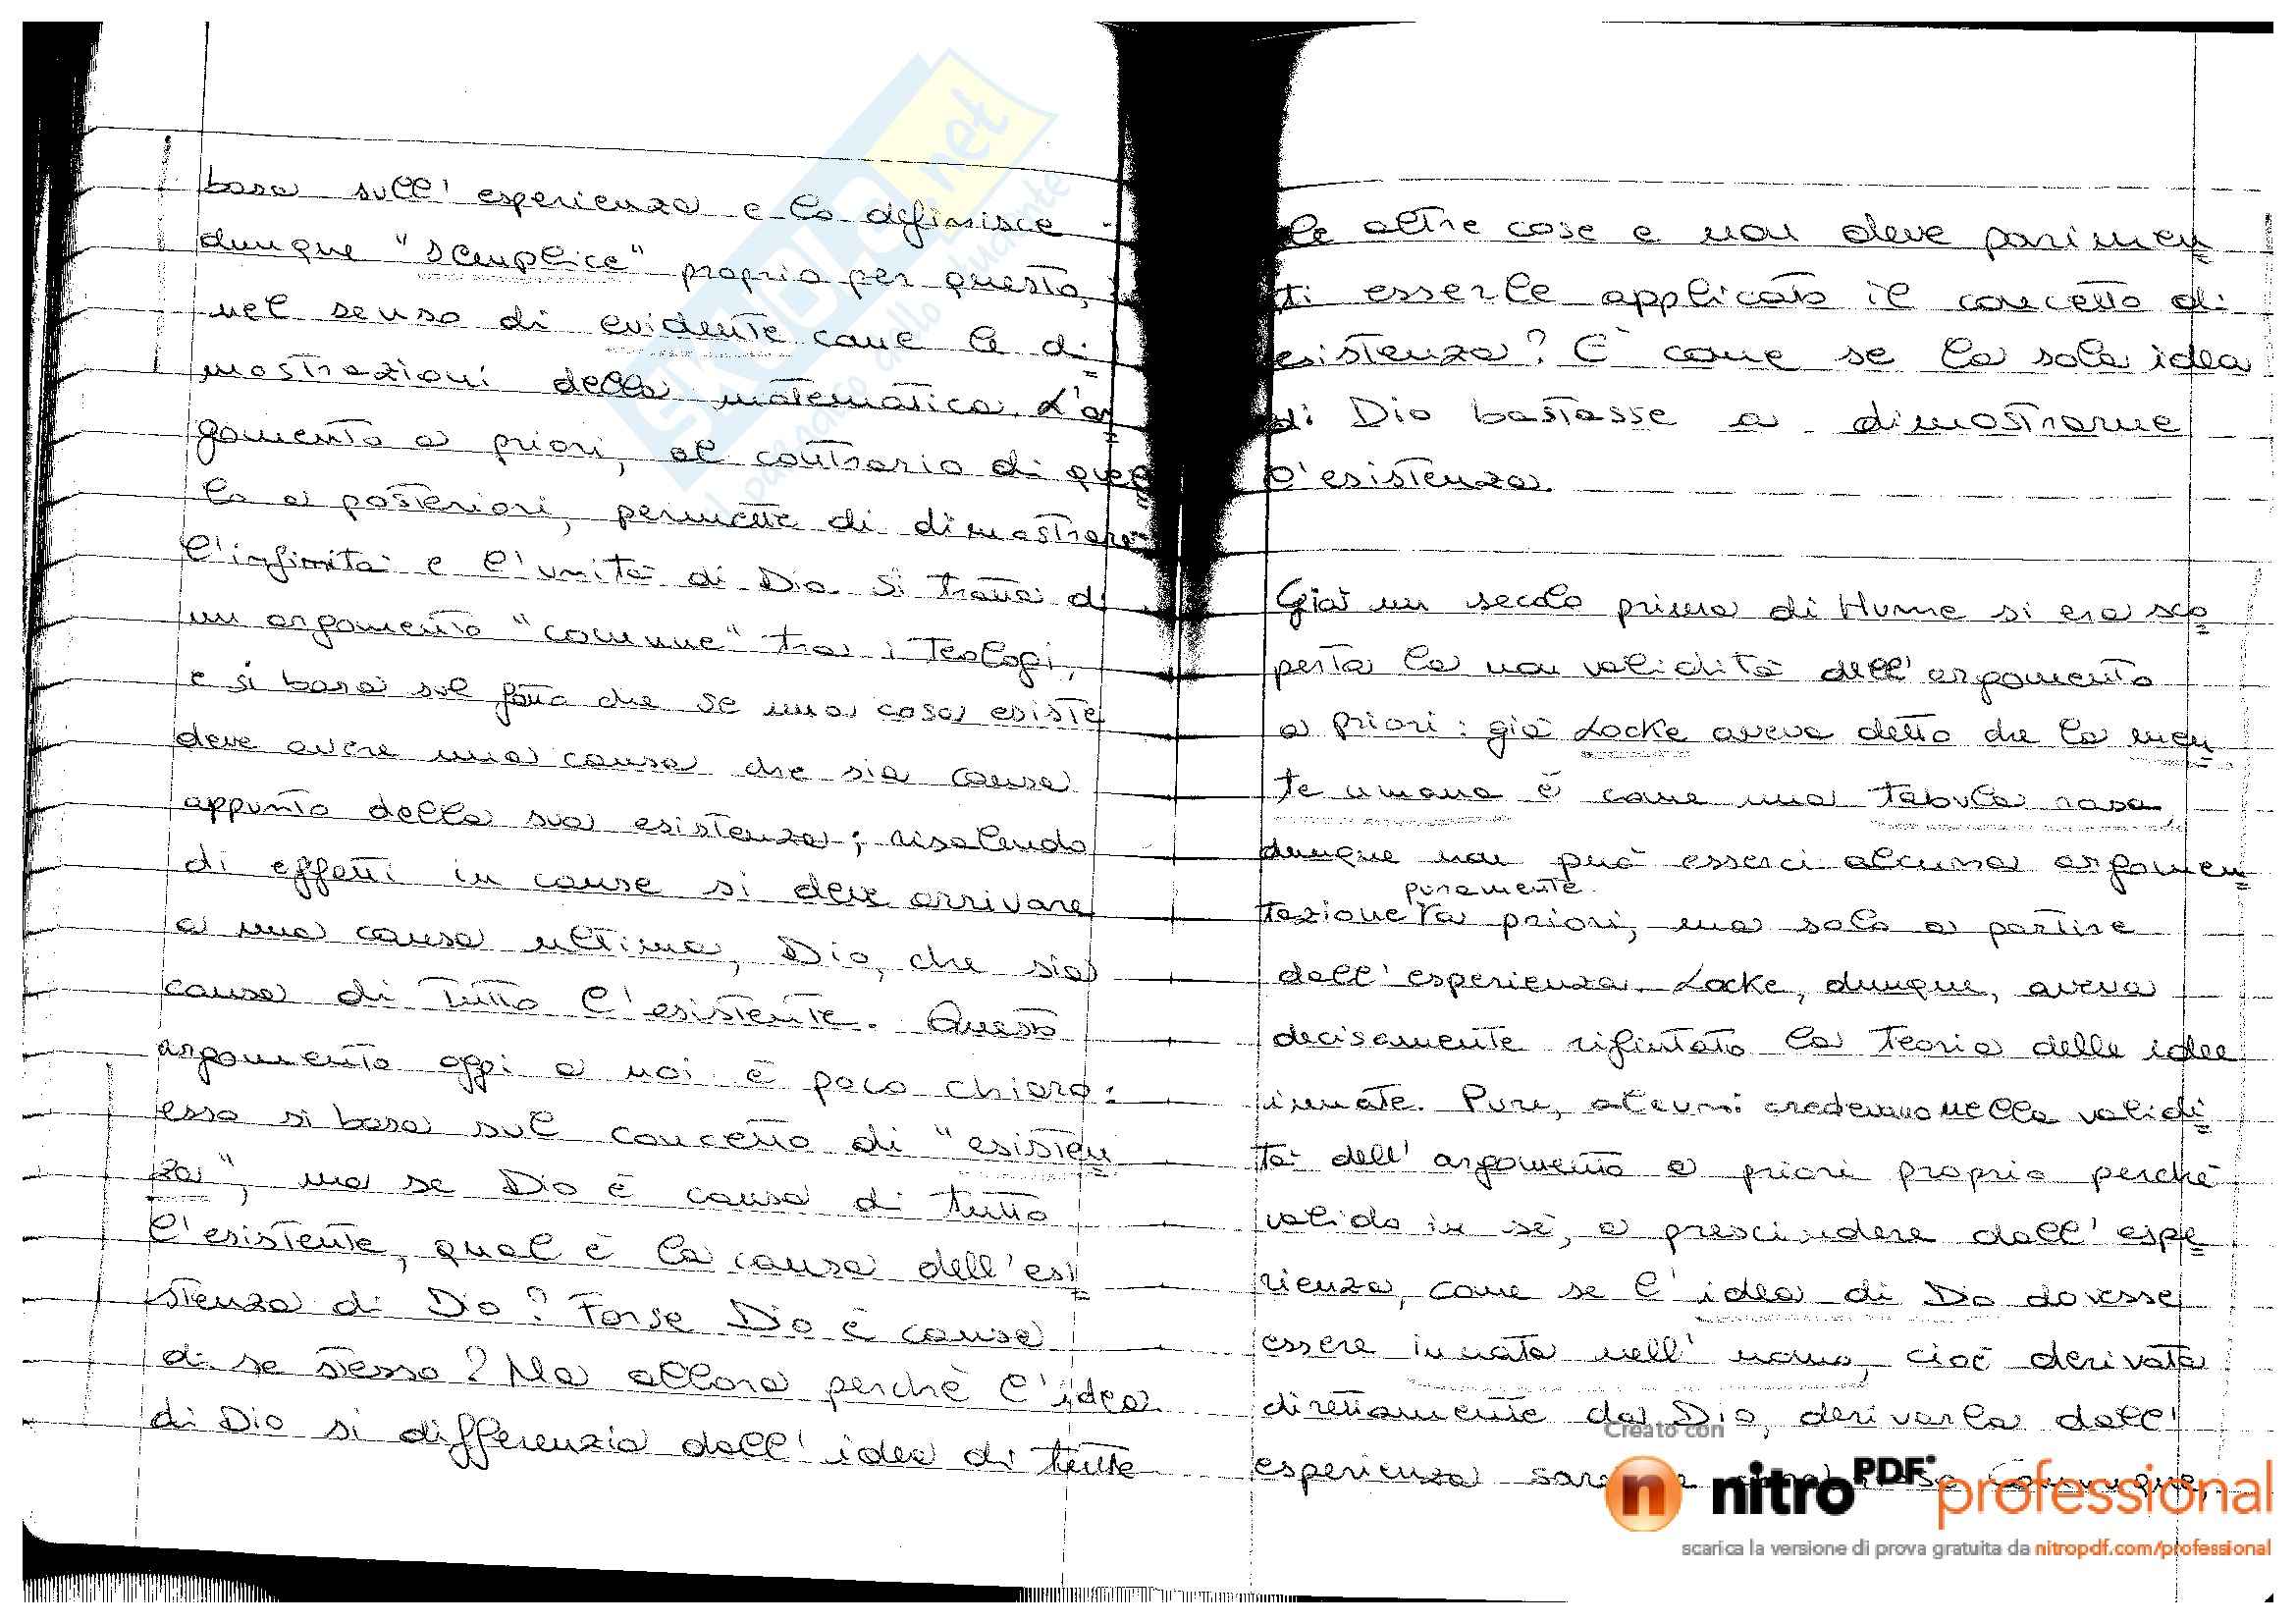 basa sull'esperienza e lo definisce
dunque "semplice" proprio per questo,
nel senso di evidente come le di
mostrazioni della matematica. L'ar
gomento a priori, al contrario di quel
lo a posteriori, permette di dimostrare
l'infinità e l'unità di Dio. Si tratta di
un argomento "comune" tra i teologi,
e si basa sul fatto che se una cosa esiste
deve avere una causa che sia causa
appunto della sua esistenza; risalendo
di effetti in cause si deve arrivare
a una causa ultima, Dio, che sia
causa di tutto l'esistente. Questo
argomento oggi a noi è poco chiaro:
esso si basa sul concetto di "esisten
za", ma se Dio è causa di tutto
l'esistente, qual è la causa dell'esi
stenza di Dio? Forse Dio è causa
di se stesso? Ma allora perchè l'idea
di Dio si differenzia dall'idea di tutte
le altre cose e non deve parimen
ti esserle applicato il concetto di
esistenza? E' come se la sola idea
di Dio bastasse a dimostrarne
l'esistenza.
Già un secolo prima di Hume si era sco
perta la non validità dell'argomento
a priori: già Locke aveva detto che la men
te umana è come una tabula rasa,
dunque non può esserci alcuna argomen
puramente
tazione a priori, ma solo a partire
dall'esperienza. Locke, dunque, aveva
decisamente rifiutato la teoria delle idee
innate. Pure, alcuni credevano nella validi
tà dell'argomento a priori proprio perchè
valido in sè, a prescindere dall'espe
rienza, come se l'idea di Dio dovesse
essere innata nell'uomo, cioè derivata
direttamente da Dio, derivarla dall'
esperienza
Creato con
nitro PDF professional
scarica la versione di prova gratuita da nitropdf.com/professional